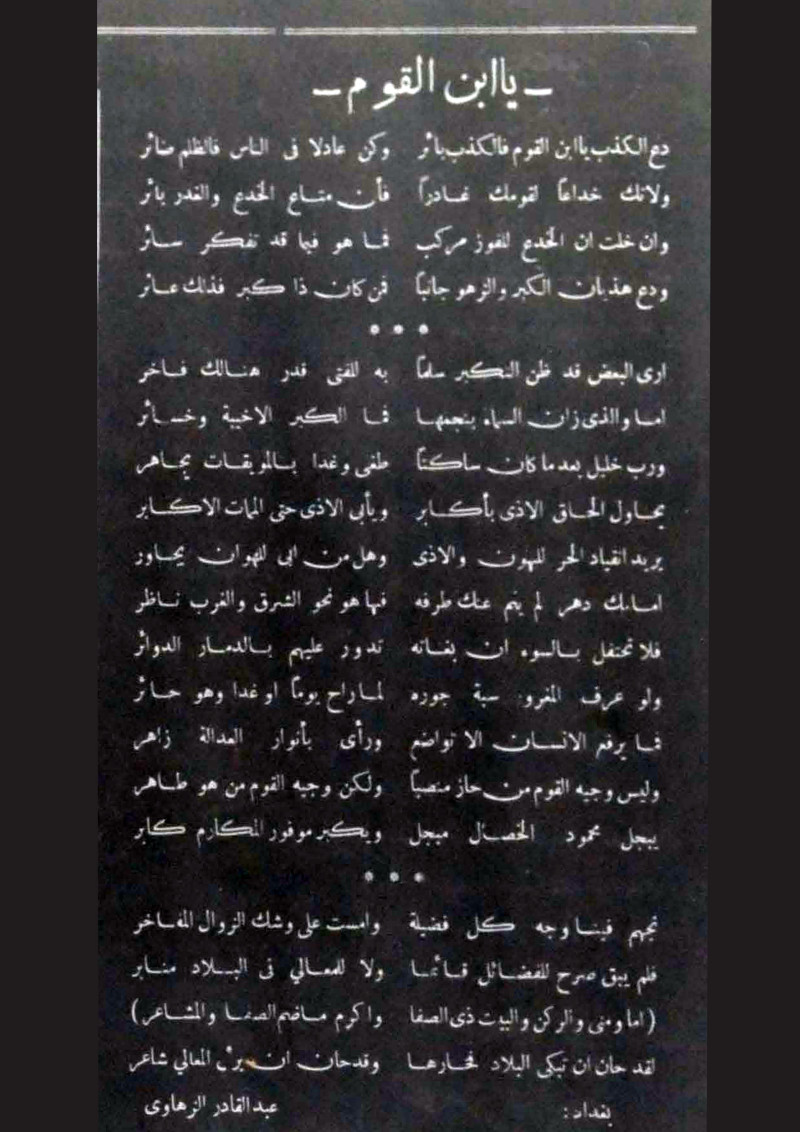 ـ يا ابن القوم ـ
دع الكذب يا ابن القوم فالكذب بائر وكن عادلا فى الناس فالظلم ضائر
ولاتك خداعاً لقومك غادراً فأن متاع الخدع والغدر بائر
وان خلت ان الخدع للفوز مركب فما هو فيما قد تفكر سائر
ودع هذيان الكبر والزهو جانباً فمن كان ذا كبر فذلك عاثر
* * *
ارى البعض قد ظن التكبر سلماً به للفتى قدر هنالك فاخر
اما والذى زان السماء بنجمها فما الكبر الاخيبة وخسائر
ورب خليل بعد ما كان ساكتاً طغى وغدا بالموبقات يجاهر
يحاول الحاق الاذى بأكابر ويأبى الاذى حتى الممات الاكابر
يريد انقياد الحر للهون والاذى وهل من ابى للهوان يحاور
امامك دهر لم ينم عنك طرفه فها هو نحو الشرق والغرب ناظر
فلا تحتفل بالسوء ان بغاته تدور عليهم بالدمار الدوائر
ولو عرف المغرو سبة جوره لما راح يوماً او غدا وهو حائر
فما يرفع الانسان الا تواضع ورأى بأنوار العدالة زاهر
وليس وجيه القوم من حاز منصباً ولكن وجيه القوم من هو طاهر
يبجل محمود الخصال مبجل ويكبر موفور المكارم كابر
* * *
تجهم فينا وجه كل فضيلة وامست على وشك الزوال المفاخر
فلم يبق صرح للفضائل قائما ولا للمعالي فى البلاد منابر
(اما ومنى والركن والبيت ذى الصفا واكرم ماضم الصفا والمشاعر)
لقد حان ان تبكى البلاد فخارها وقد حان ان يرثى المعالي شاعر
بغداد: عبد القادر الزهاوى